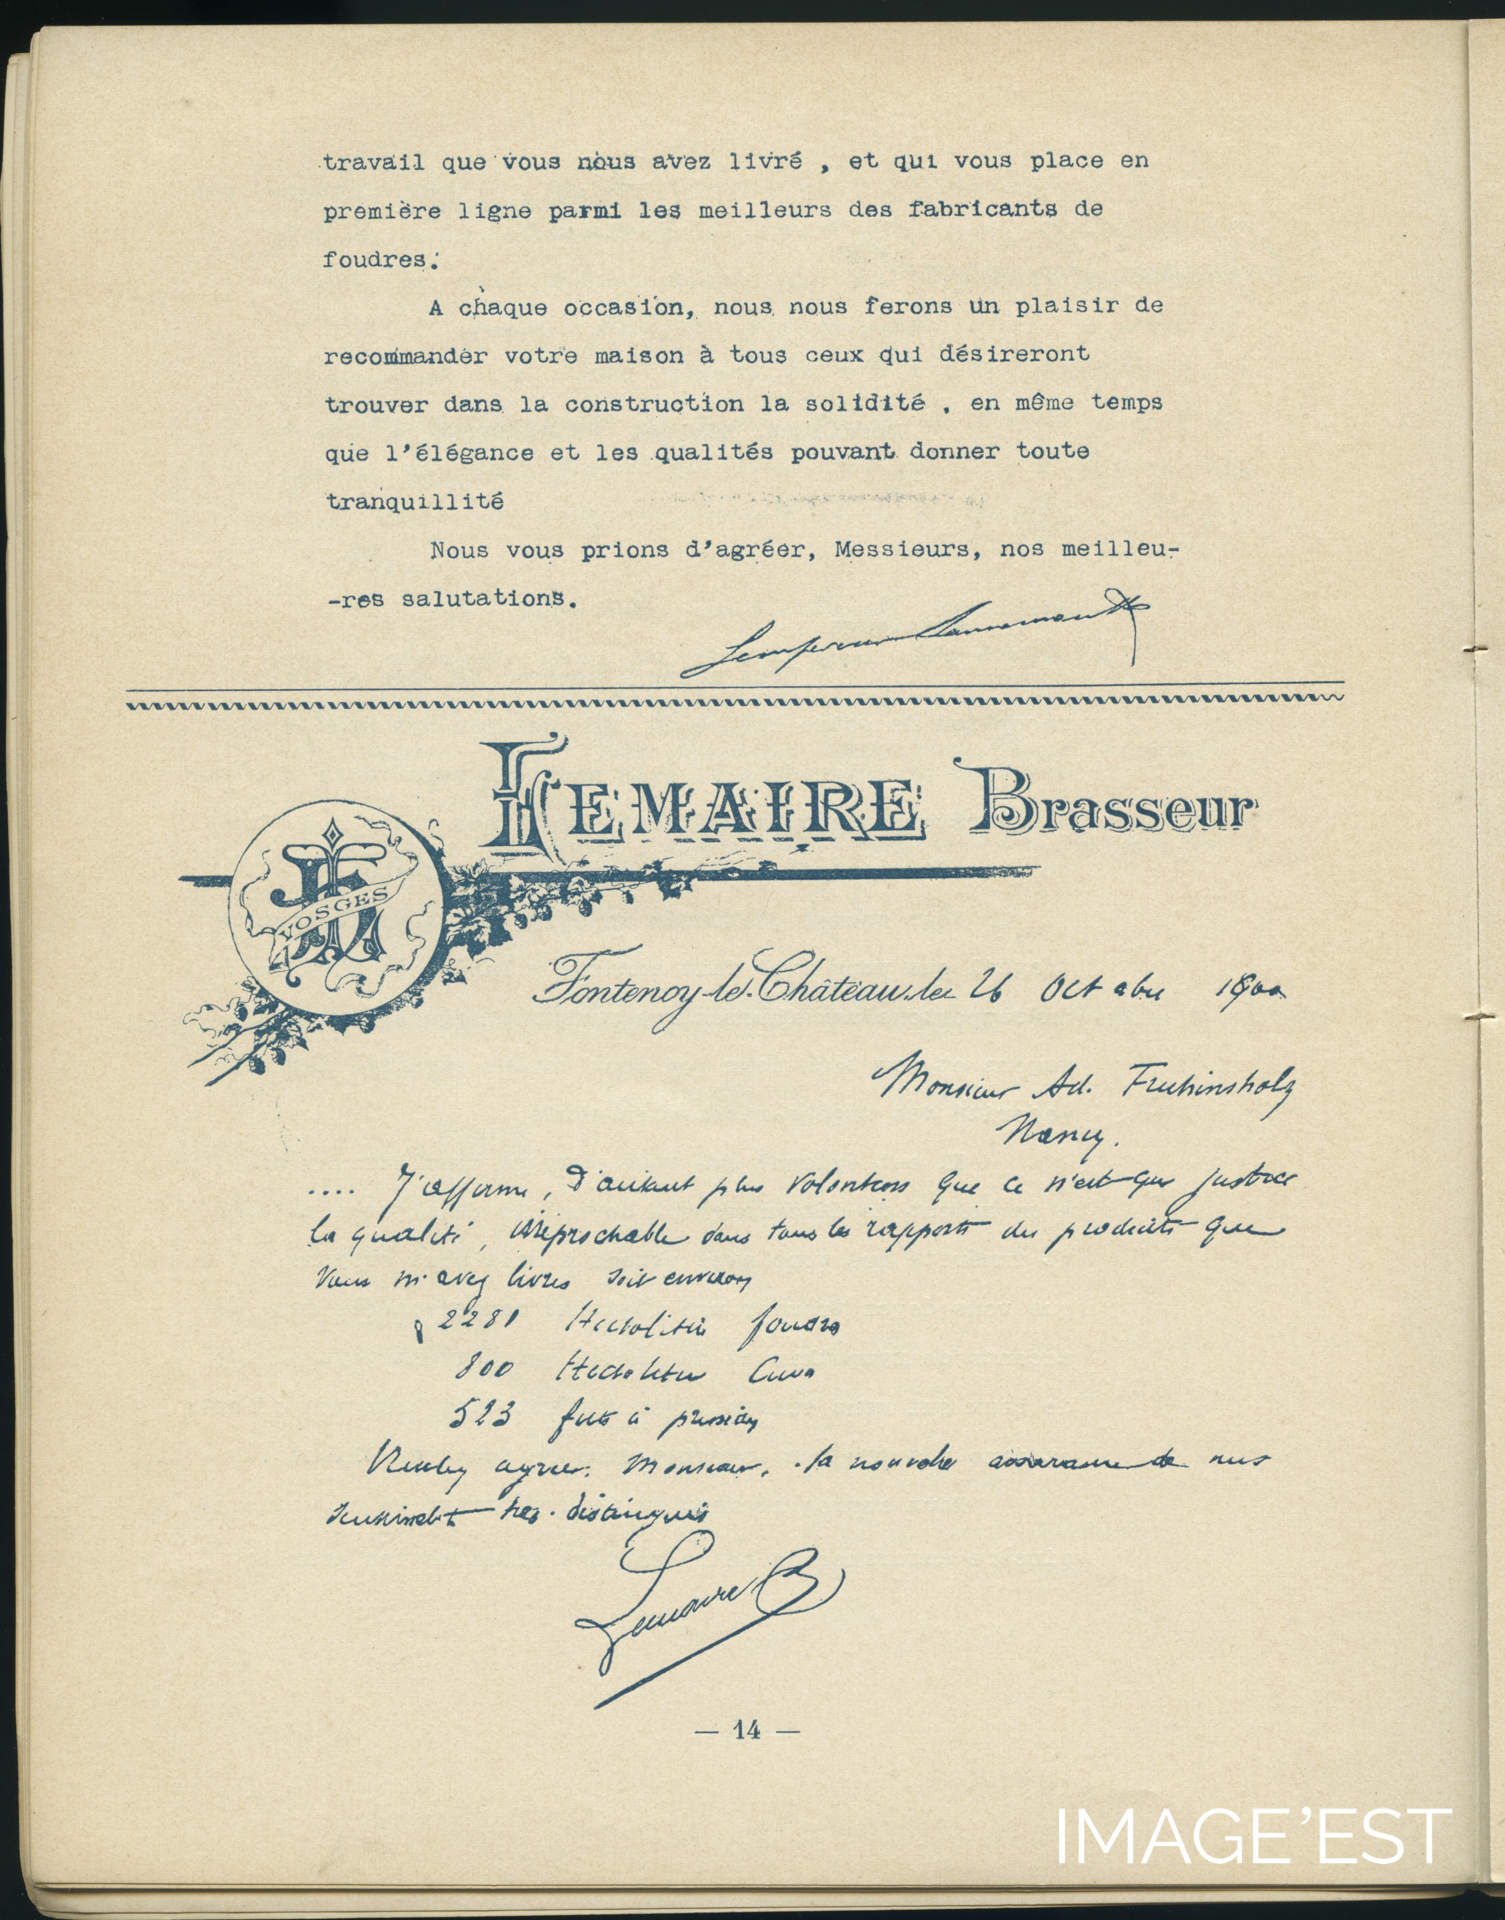 travail que vous nous avez livré , et qui vous place en
première ligne parmi les meilleurs des fabricants de
foudres.
A chaque occasion, nous nous ferons un plaisir de
recommander votre maison à tous ceux qui désireront
trouver dans la construction la solidité , en même temps
que l'élégance et les qualités pouvant donner toute
tranquillité
Nous vous prions d'agréer, Messieurs, nos meilleu-
-res salutations.
LEMAIRE Brasseur
VOSGES
Fontenoy-le-Château, le 26 Octobre 1900
Monsieur Ad. Fruhinsholz
Nancy.
.... J'affirme, d'autant plus volontiers que ce n'est que justice
la qualité, irréprochable dans tous les rapports des produits que
vous m'avez livrés soit environ
2281 Hectolitres foudres
800 Hectolitres Cuves
523 futs à pression
Veuillez agréer, Monsieur, la nouvelle assurance de nos
sentiments très distingués
Lemaire
— 14 —
IMAGE'EST